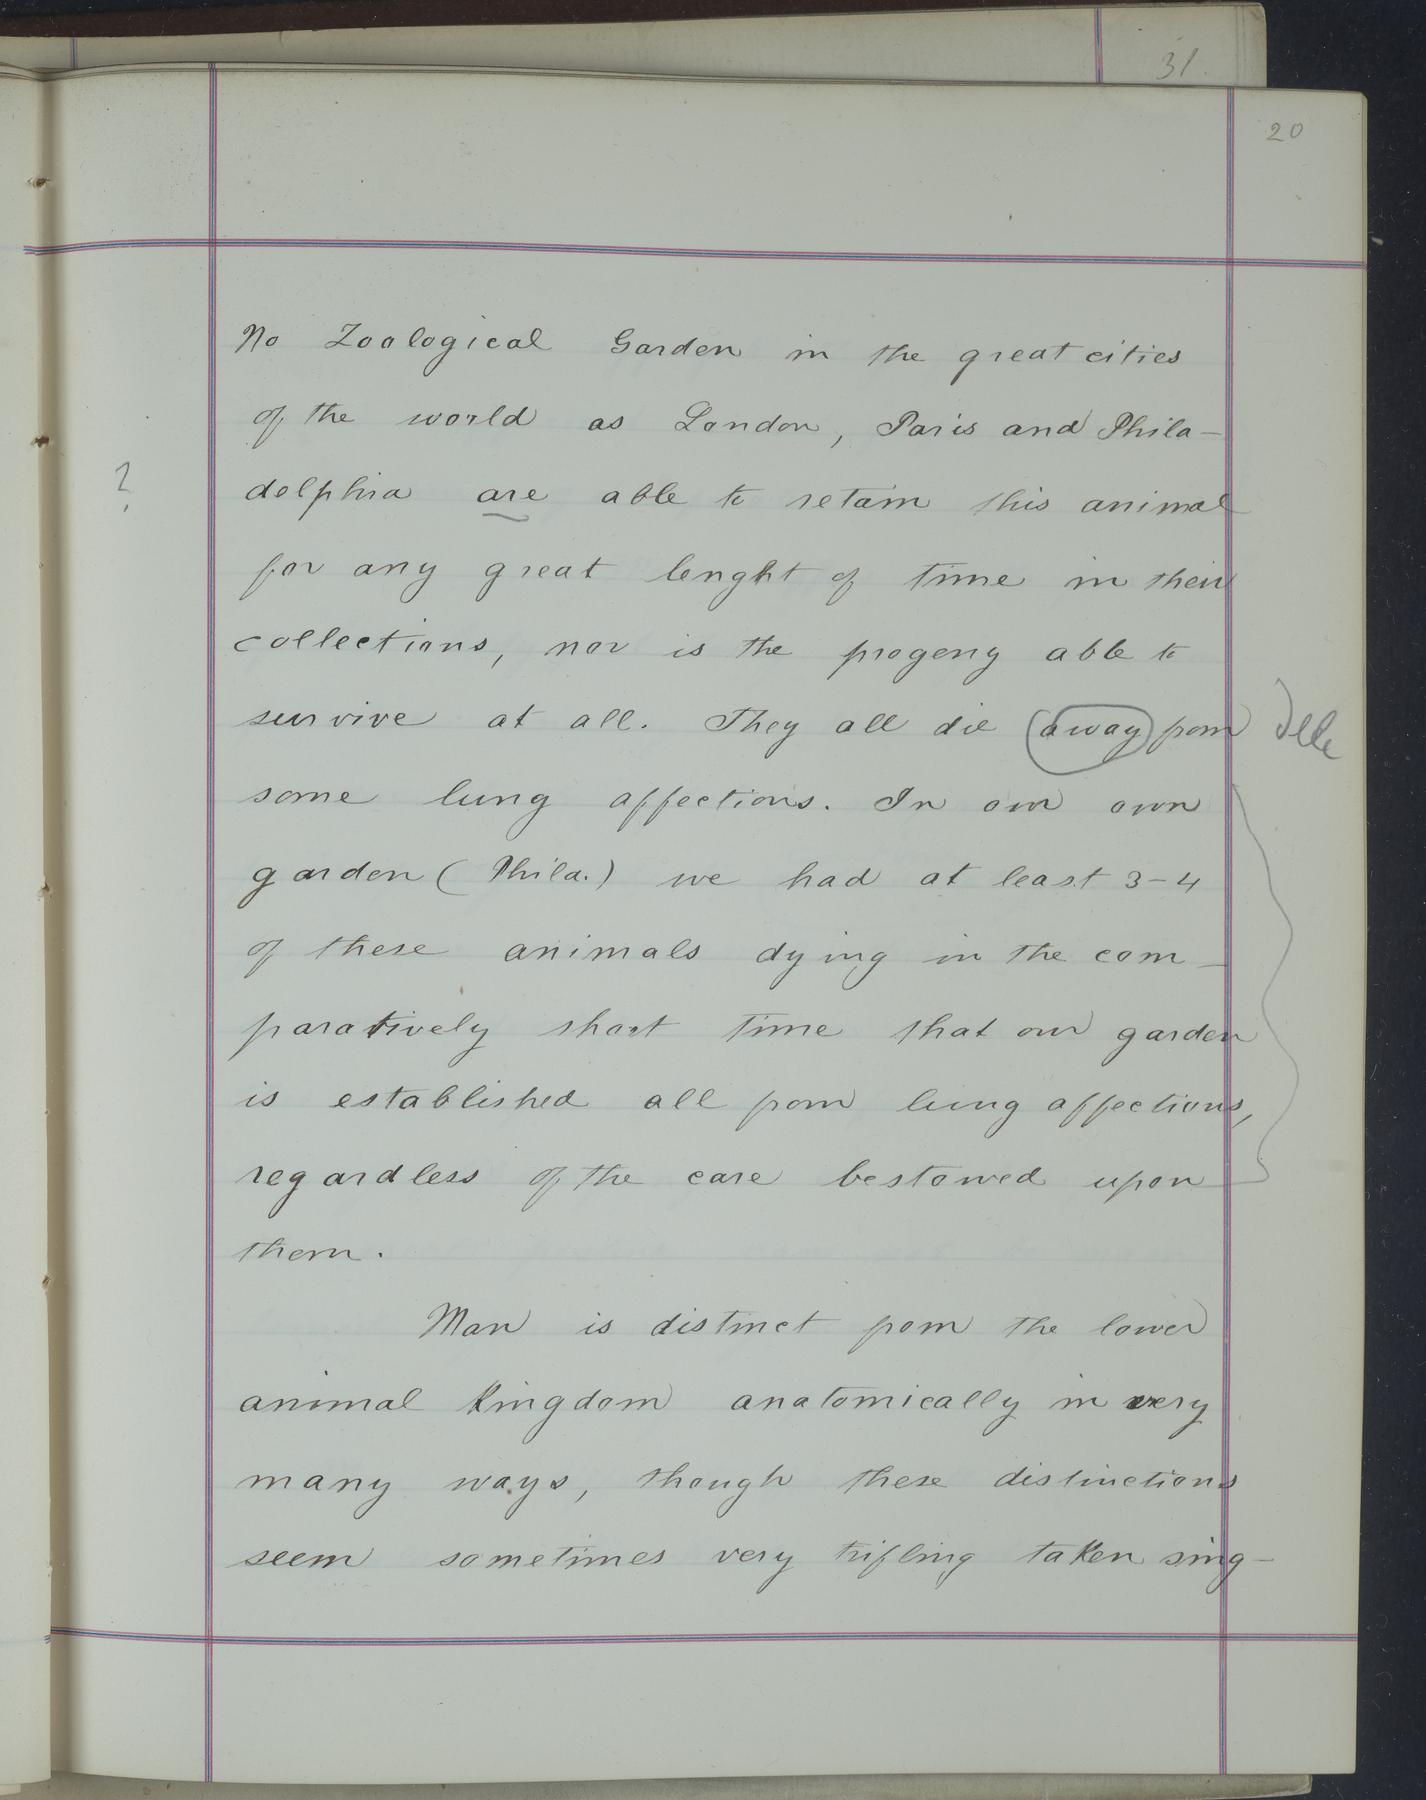 31.
20
No Zoological Garden in the great cities
of the world as London, Paris and Phila-
delphia are able to retain this animal
?
for any great lenght of time in their
collections, nor is the progeny able to
survive at all. They all die away from
some lung affections. In our own
garden (Phila.) we had at least 3-4
of these animals dying in the com-
paratively short time that our garden
is established all from lung affections,
regardless of the care bestowed upon
them.
Man is distinct from the lower
animal kingdom anatomically in very
many ways, though these distinctions
seem sometimes very trifling taken sing-